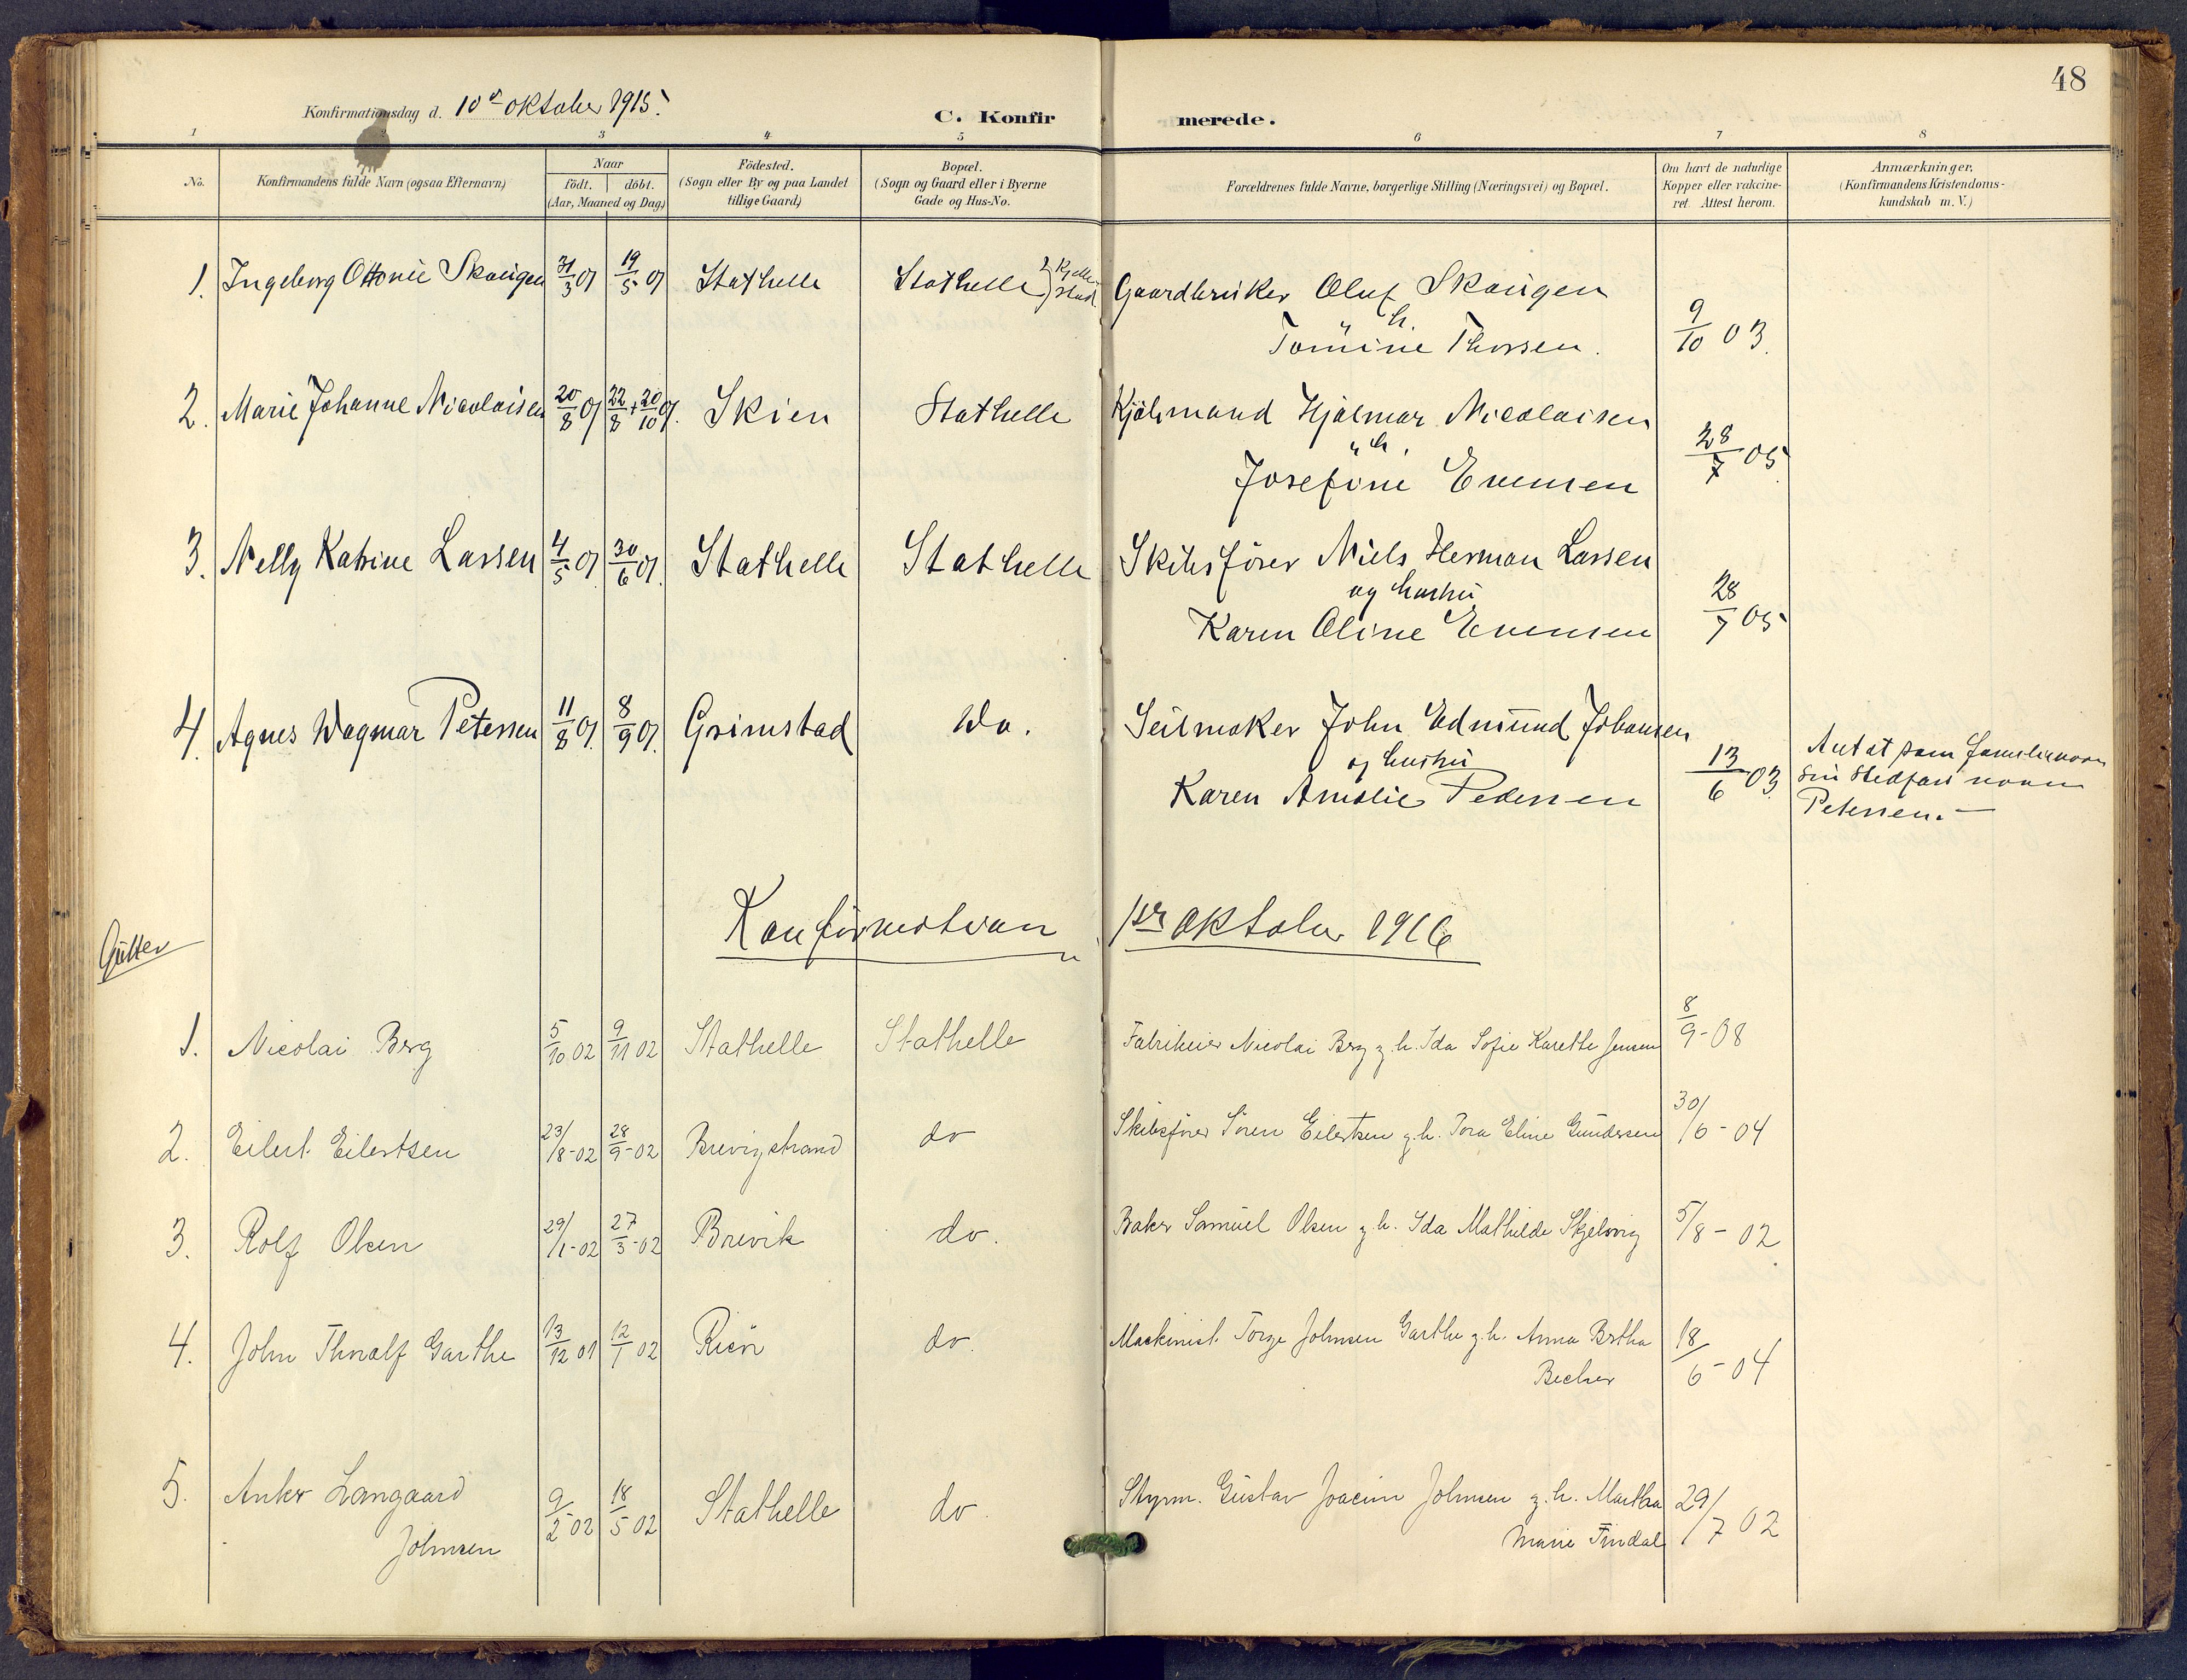 48
Konfirmationsdag d. 10de oktober 1915.
C. Konfirmerede.
1 2 3 4 5 6 7 8
No. Konfirmandens fulde Navn (ogsaa Efternavn) Naar födt. döbt. (Aar, Maaned og Dag.) Födested. (Sogn eller By og paa Landet tillige Gaard) Bopæl. (Sogn og Gaard eller i Byerne Gade og Hus-No. Forældrenes fulde Navne, borgerlige Stilling (Næringsvei) og Bopæl. Om havt de naturlige Kopper eller vakcineret. Attest herom. Anmærkninger. (Konfirmandens Kristendomskundskab m.V.)
1. Ingeborg Ottonie Skaugen 31/3 01 19/5 01 Stathelle Stathelle Gaardbruker Oluf Skaugen
" h.
Tomine Thorsen. 9/10 03.
2. Marie Johanne Nicolaisen 20/8 01 22/8 + 20/10 01. Skien Stathelle Kjølmand Hjalmar Nicolaisen
" h.
Josefine Evensen 28/7 05
3. Nelly Katrine Lassen 4/5 01 30/6 01. Stathelle Stathelle Skibsfører Niels Herman Lassen
og hustru
Karen Oline Evensen 28/7 05
4. Agnes Dagmar Petersen 11/8 01. 8/9 01. Grimstad Do. Seilmaker John Edmund Johansen
og hustru
Karen Amalie Pedersen 13/6 03.
Antat som familienavn
sin Stedfars navn
Petersen. —
Konfirmation 1ste oktober 1916
Gutter
1. Nicolai Berg 5/10 02 9/11 02 Stathelle Stathelle Fabrikeier Nicolai Berg g. h. Ida Sofie Karethe Jensen 8/9 - 08
2. Eilert Eilertsen 23/8-02 28/9-02 Brevigstrand do Skibsfører Søren Eilertsen g. h. Tora Eline Gundersen 30/6 - 04
3. Rolf Olsen 29/1-02 27/3-02 Brevik do. Baker Samuel Olsen g. h. Ida Mathilde Skjelvig 5/8 - 02
4. John Thoralf Garthe 13/12 01 12/1 02 Risør do. Maskinist Torge Johnsen Garthe g. h. Anna Bertha
Becker 18/6 - 04
5. Anker Langaard
Johnsen 9/2-02 18/5 02 Stathelle do. Styrm. Gustav Joacim Johnsen g. h. Martha
Marie Findal 29/7 02